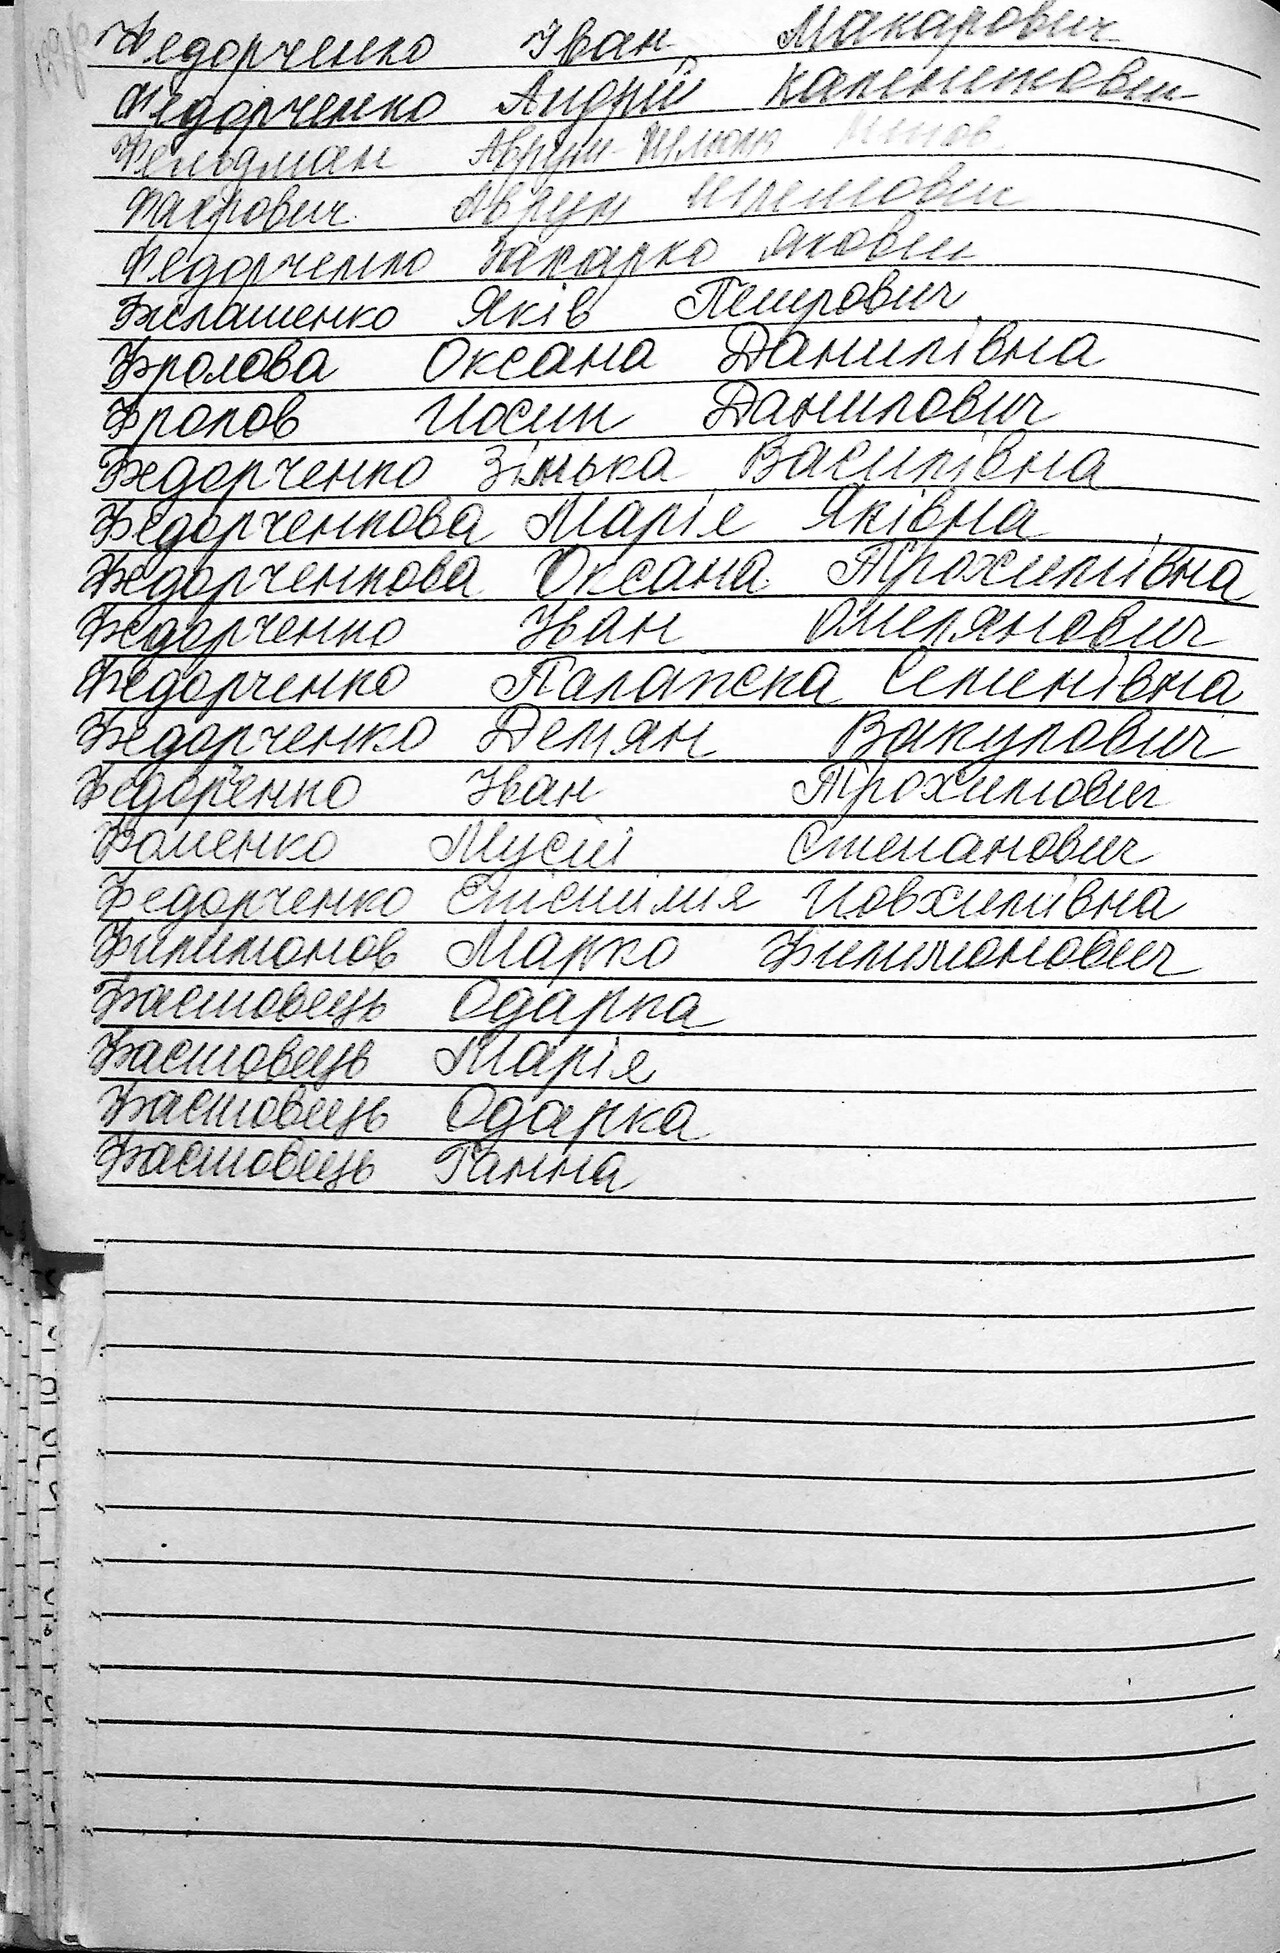 Федорченко Іван Макарович
Федорченко Андрій Каленикович
Фельдман Аврум
Аврум
Федорченко Захарко Якович
Филашенко Яків Петрович
Фролова Оксана Данилівна
Фролов Иосип Данилович
Федорченко Зінька Василівна
Федорченкова Маріє Яківна
Федорченкова Оксана Трохимівна
Федорченко Іван Омелянович
Федорченко Палажка Семенівна
Федорченко Демян Вакулович
Федорченко Іван Трохимович
Фоменко Мусій Степанович
Федорченко Иовхимівна
Филимонов Марко Филимонович
Фастовець Одарка
Фастовець Маріє
Фастовець Одарка
Фастовець Ганна